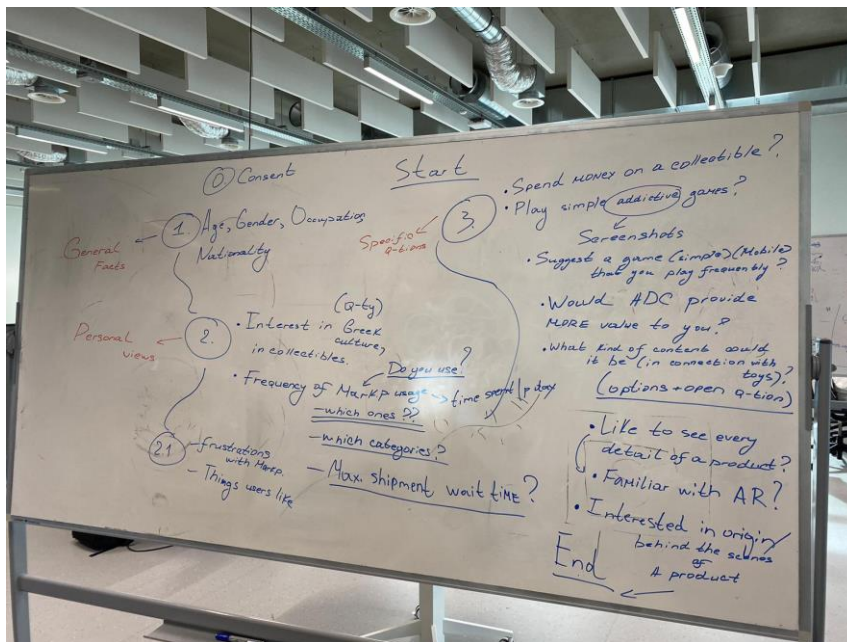 0 Consent
Start
1. Age, Gender, Occupation,
Nationality
General
Facts
2. • Interest in Greek (Q-ty)
culture,
in collectibles.
Personal
views
Do you use?
• Frequency of Mark.p usage → time spent p day
- which ones??
- which categories?
- Max. shipment wait time?
2.1 - frustrations
with Marp.
- Things users like
3.
Specific
Q-tions
• Spend money on a collectible?
• Play simple addictive games?
Screenshots
• Suggest a game (simple) (Mobile)
that you play frequently?
• Would ADC provide
MORE value to you?
• What kind of content could
it be (in connection with
toys)?
(options + open q-tion)
• Like to see every
detail of a product?
• Familiar with AR?
• Interested in origin/
behind the scenes
of
A product
End